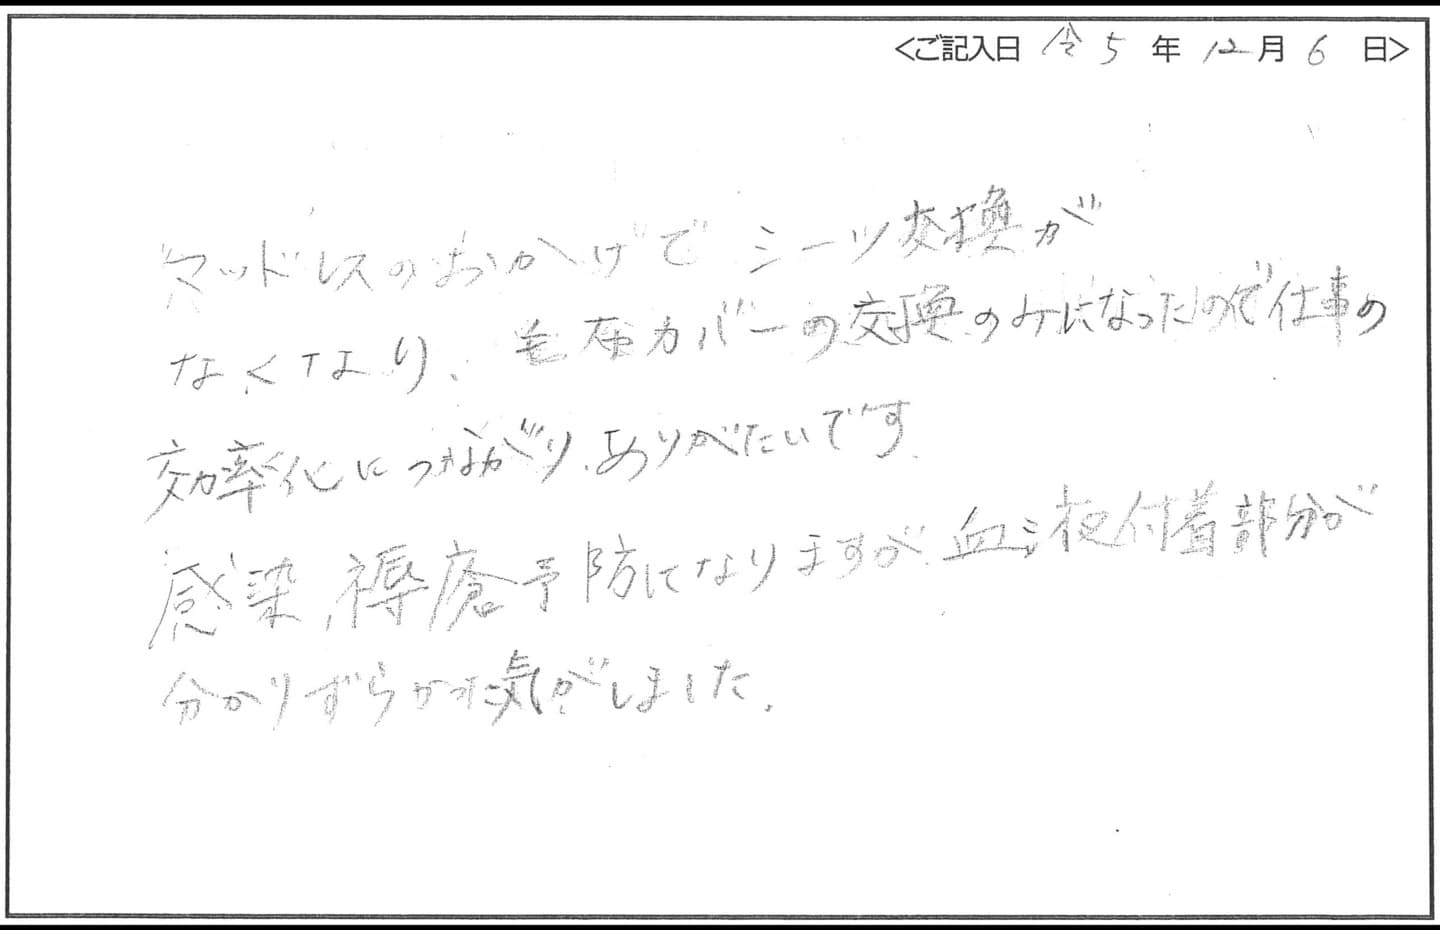 <ご記入日 令5年12月6日>
マッドレスのおかげでシーツ交換が
なくなり、毛布カバーの交換のみになったので仕事の
効率化につながり、ありがたいです。
感染、褥瘡予防になりますが、血液付着部分が
分かりずらかった気がしました。